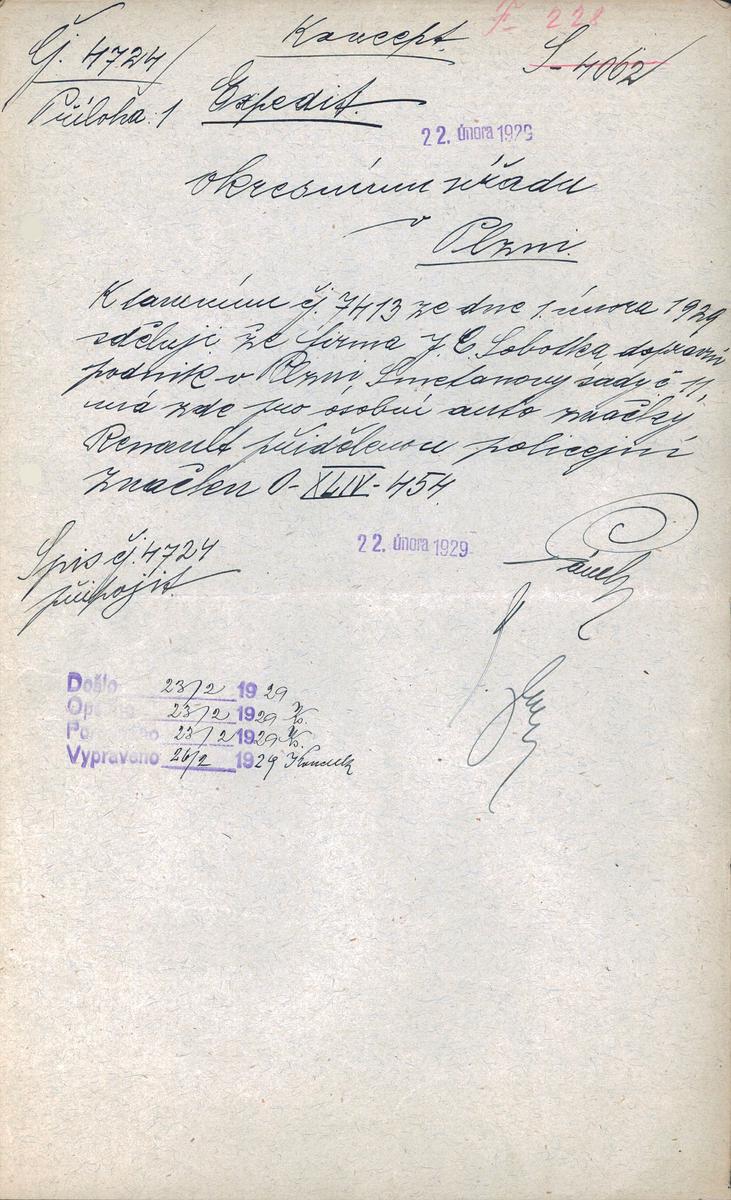 F 228
Koncept.
Čj. 4724/
S-4062/
Příloha: 1
Expedit.
22. února 1929
okresnímu úřadu
v
Plzni.
K tamnímu čj. 7413 ze dne 1. února 1929
sděluji že firma J. C. Sobotka, dopravní
podnik v Plzni, Smetanovy sady č 11,
má zde pro osobní auto značky
Renault přidělenou policejní
značku O-XLIV-454.
22. února 1929
Spis čj. 4724
připojit.
Došlo 23/2 1929
23/2 1929 K.
23/2 1929 K.
Vypraveno 26/2 1929